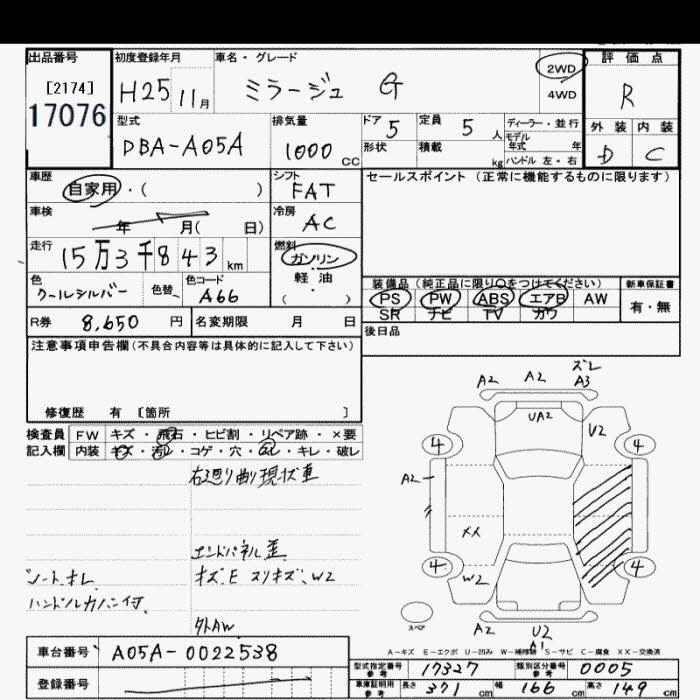 出品番号
[2174]
17076
初度登録年月
H25 11月
車名・グレード
ミラージュ G
2WD
4WD
評価点
R
外装 内装
D C
型式
DBA-A05A
排気量
1000 CC
ドア 5
形状
定員 5 人
積載 kg
ディーラー・並行
モデル
年式 年
ハンドル 左・右
車歴
自家用・( )
シフト
FAT
セールスポイント (正常に機能するものに限ります)
車検
年 月( 日)
冷房
AC
走行
15万3千843 km
燃料
ガソリン
軽油
( )
色
クールシルバー
色替
色コード
A66
装備品 (純正品に限り○をつけてください)
PS PW ABS エアB AW
SR ナビ TV カワ
新車保証書
有・無
R券 8,650 円
名変期限 月 日
後日品
注意事項申告欄(不具合内容等は具体的に記入して下さい)
修復歴 有 [箇所 ]
検査員
記入欄
FW キズ・飛石・ヒビ割・リペア跡・×要
内装 キズ・汚れ・コゲ・穴・スレ・キレ・破レ
右廻り曲り現状車
エンドパネル歪
キズ.E スリキズ.W2
シートオレ
ハンドルカバー付.
外AW
A2 A2 ズレ
A3
UA2 V2
4 4
A2
XX
4 4
W2
スペア
A2 U2
A1
A-キズ E-エクボ U-凹み W-補修跡 S-サビ C-腐食 XX-交換済
車台番号 A05A-0022538
登録番号
型式指定番号
参考 17327
類別区分番号
参考 0005
車庫証明用
参考 長さ 371 cm 幅 166 cm 高さ 149 cm